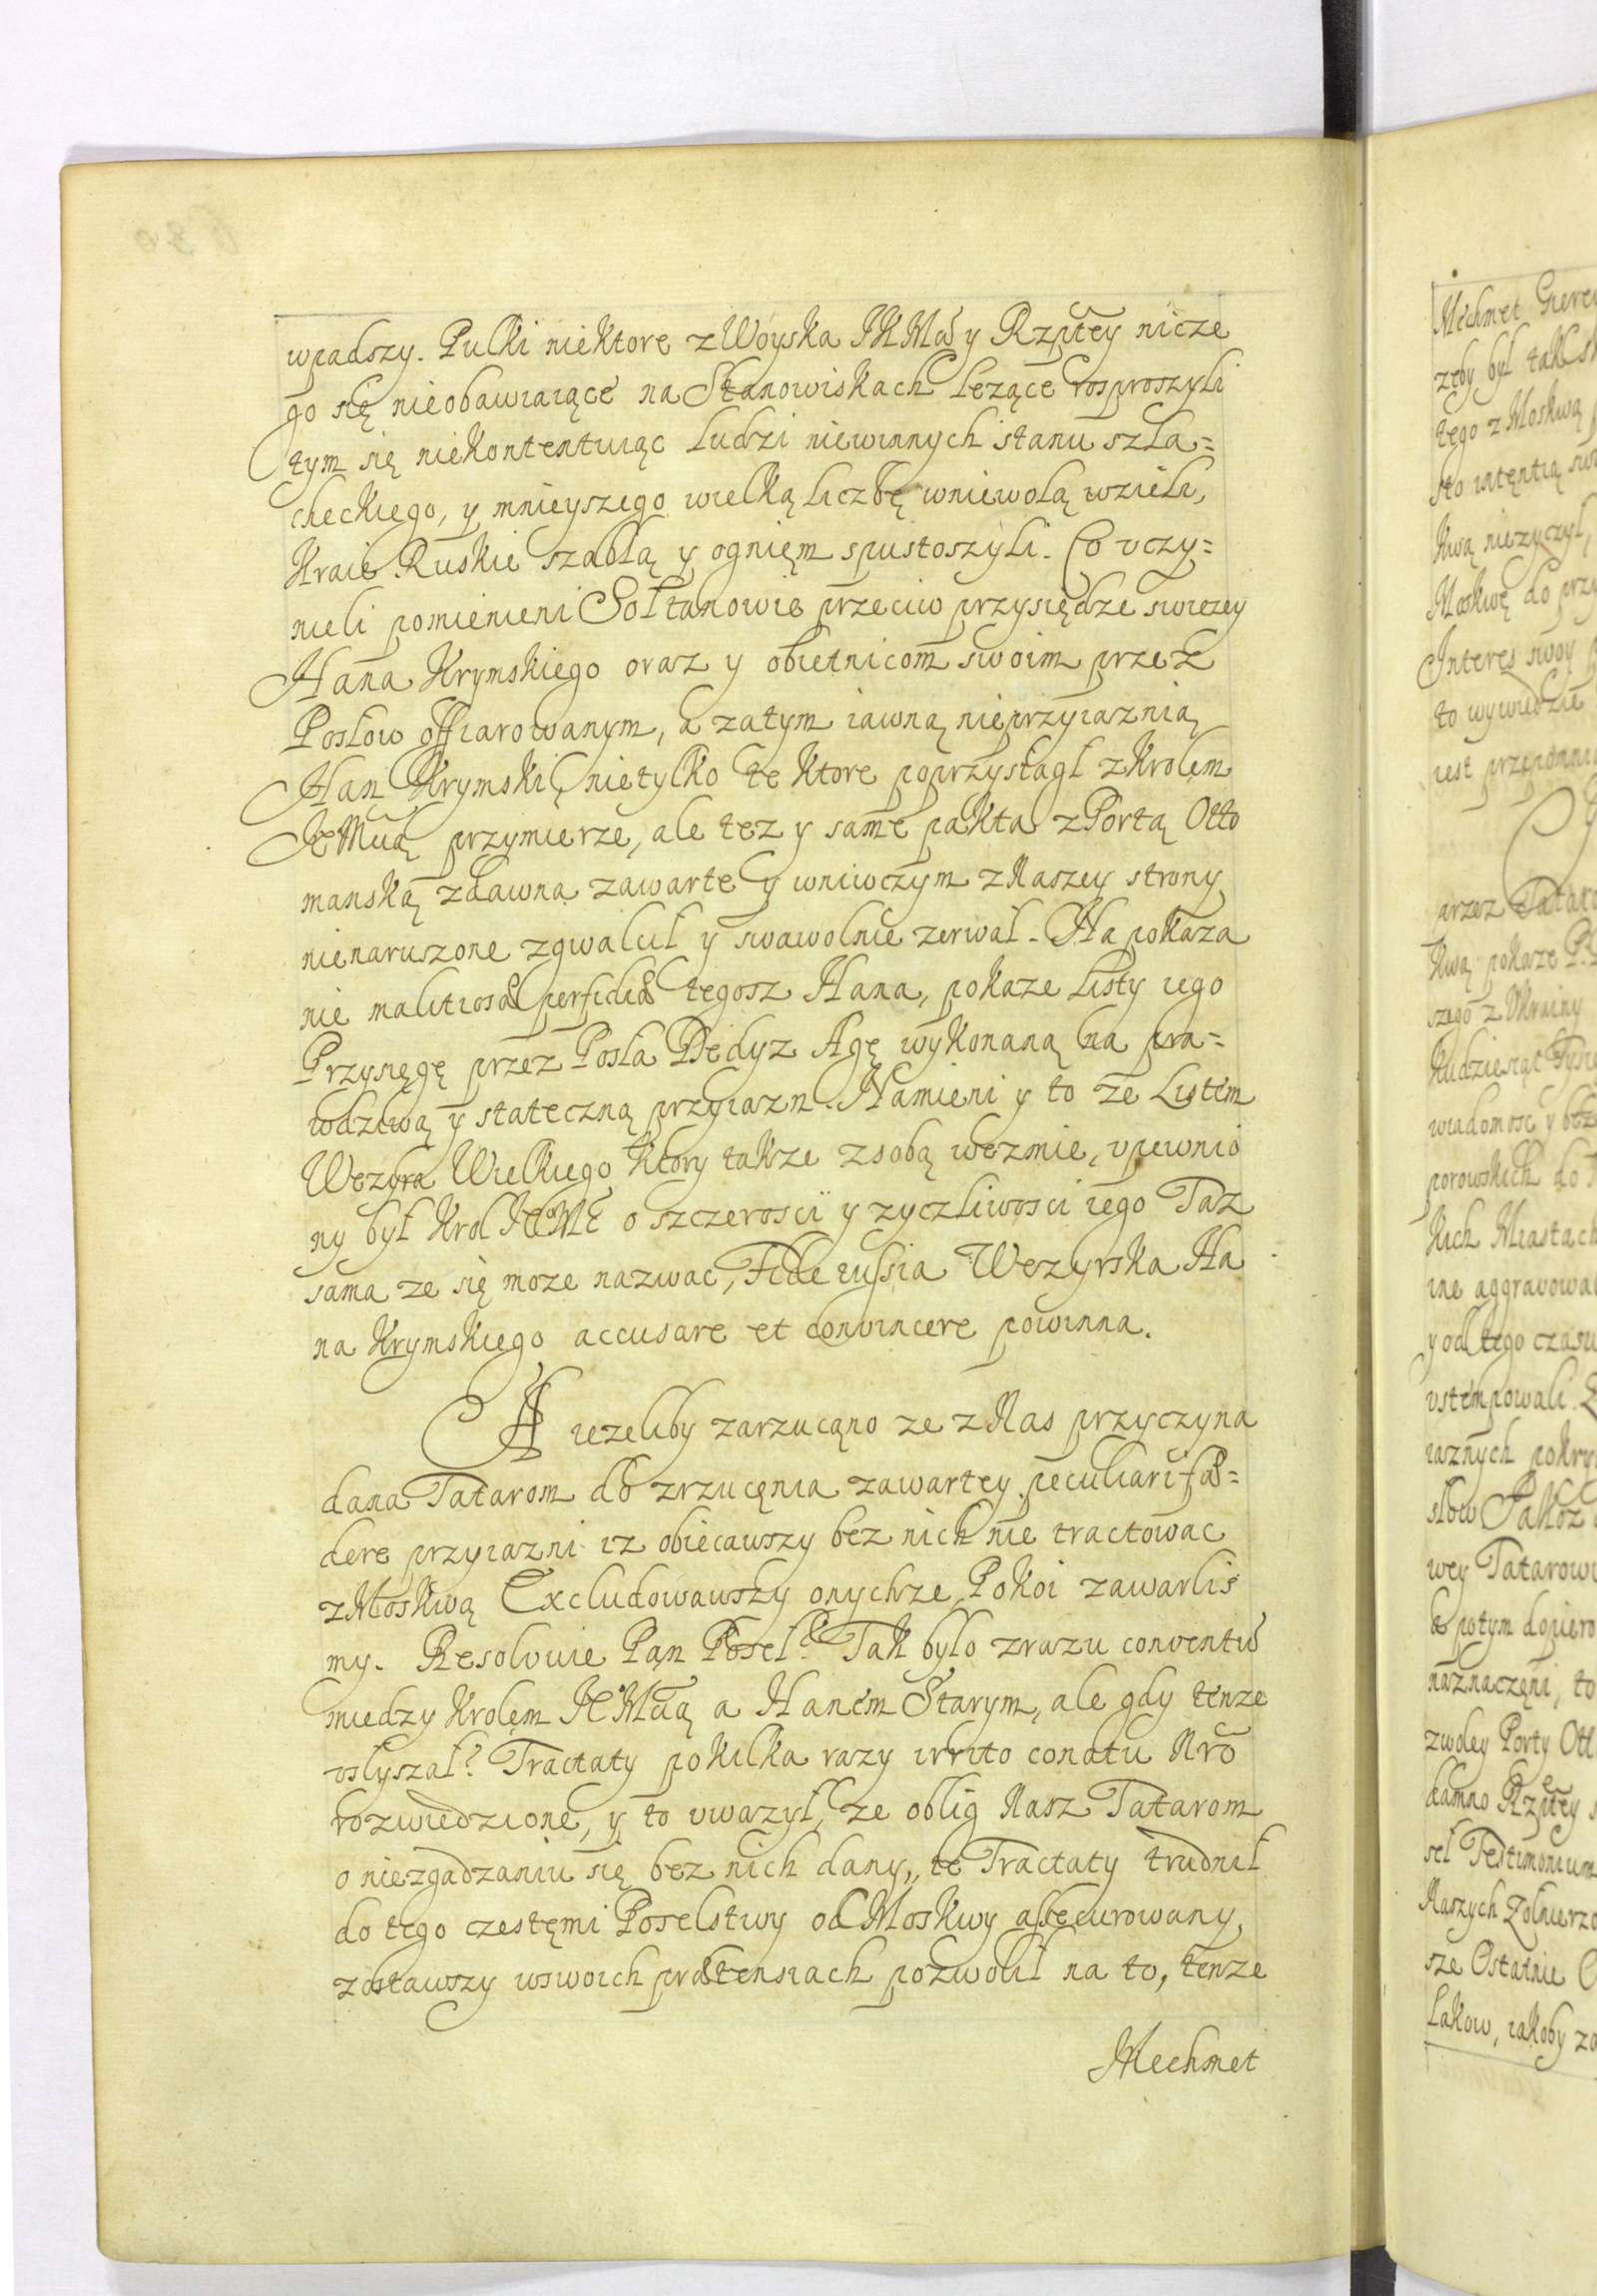 wpadszy. Pulki niektore z Woyska JKMci y Rzpltey nicze
go się nieobawiaiące na Stanowiskach leżące rosproszyli
tym się niekontentuiąc ludzi niewinnych stanu szla=
checkiego, y mnieyszego wielką liczbę wniewolą wzieli,
Kraie Ruskie szablą y ognięm spustoszyli. Co vczy=
nieli pomienieni Sołtanowie przeciw przysiędze swiezey
Hana Krymskiego oraz y obietnicom swoim przez
Posłow offiarowanym, a zatym iawną nieprzyiaznią
Han Krymski, nietylko te ktore poprzysłągł z Krolem
Je Mcią przymierze, ale tez y same pakta z Portą Otto
manską zdawna zawarte y wniwczym z Naszey strony
nienaruszone zgwalcił y swawolnie zerwał. Na pokaza
nie malitiosæ perfidiæ tegosz Hana, pokaze Listy iego
Przysięgę przez Posła Dedyz Agę wykonaną na pra=
wdziwą y stateczną przyiazn. Namieni y to ze Listem
Wezyra Wielkiego ktory takze zsobą wezmie, vpewnio
ny był Krol JEMć o szczerosci y zyczliwosci iego Taz
sama ze się moze nazwac, Fideiussia Wezyrska Ha
na Krymskiego accusare et convincere powinna.
A iezeliby zarzucąno ze z Nas przyczyna
dana Tatarom do zrzucęnia zawartey peculiari fæ=
dere przyiazni iz obiecawszy bez nich nie tractowac
z Moskwą Excludowawszy onychze Pokoi zawarlis
my. Resolvuie Pąn Poseł? Tak bylo zrazu conventũ
miedzy Krolęm JE Mcią a Hanem Starym, ale gdy tenze
vslyszał? Tractaty pokilka razy irrito conatu Nrõ
rozwiedzione, y to vwazył, ze oblig Nasz Tatarom
o niezgadzaniu się bez nich dany, te Tractaty trudnił
do tego częstemi Poselstwy od Moskwy assecurowany,
zostawszy wswoich prætensiach pozwolił na to, tenze
Mechmet

Mechmet Gierei
zeby był tak
tego z Moskwą
sto intętią
kwą niezyczył,
Moskwę do przy
Interes swoy
to wywiedzie
iest przepomni
przez Tatar
kwą pokaze P.
szego z Ukrainy
kudziesiąt Tysię
wiadomosc y bez
porowskich do
kich Miastach
ine aggravowa
y od tego czasu
vstempowali.
iaznych pokry
słow Jakoz
wey Tatarow
le potym dopiero
naznaczęni, to
zwoley Porty Ott
damno Rzpltey
seł Testimonium
Naszych Zolnierzo
sze Ostatnie
Lakow, iakoby za